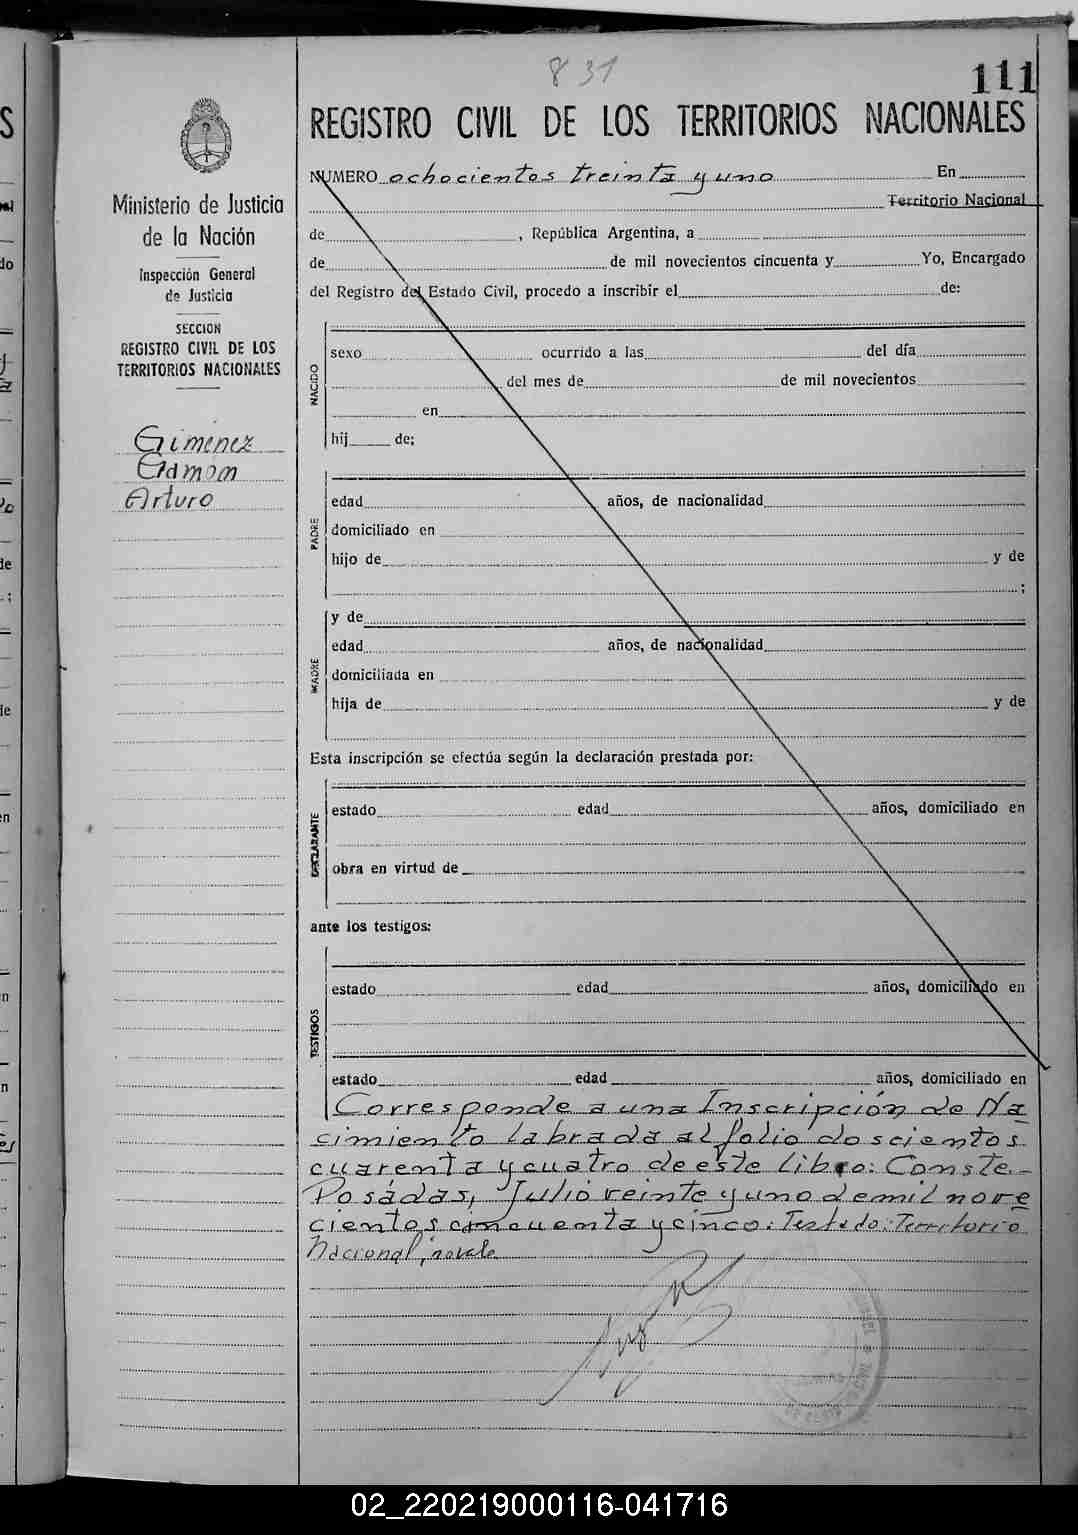 8 31
111
REGISTRO CIVIL DE LOS TERRITORIOS NACIONALES
Ministerio de Justicia
de la Nación
Inspección General
de Justicia
SECCION
REGISTRO CIVIL DE LOS
TERRITORIOS NACIONALES
Gimenez
Ramón
Arturo
NUMERO ochocientos treinta y uno En
Territorio Nacional
de , República Argentina, a
de de mil novecientos cincuenta y Yo, Encargado
del Registro del Estado Civil, procedo a inscribir el de:
NACIDO
sexo ocurrido a las del día
del mes de de mil novecientos
en
hij de;
PADRE
edad años, de nacionalidad
domiciliado en
hijo de y de
;
MADRE
y de
edad años, de nacionalidad
domiciliada en
hija de y de
Esta inscripción se efectúa según la declaración prestada por:
DECLARANTE
estado edad años, domiciliado en
obra en virtud de
ante los testigos:
TESTIGOS
estado edad años, domiciliado en
estado edad años, domiciliado en
Corresponde a una Inscripción de Na
cimiento labrada al folio doscientos
cuarenta y cuatro de este libro: Conste.-
Posadas, Julio veinte y uno de mil nove
cientos cincuenta y cinco: Testado: Territorio
Nacional, no vale
02_220219000116-041716